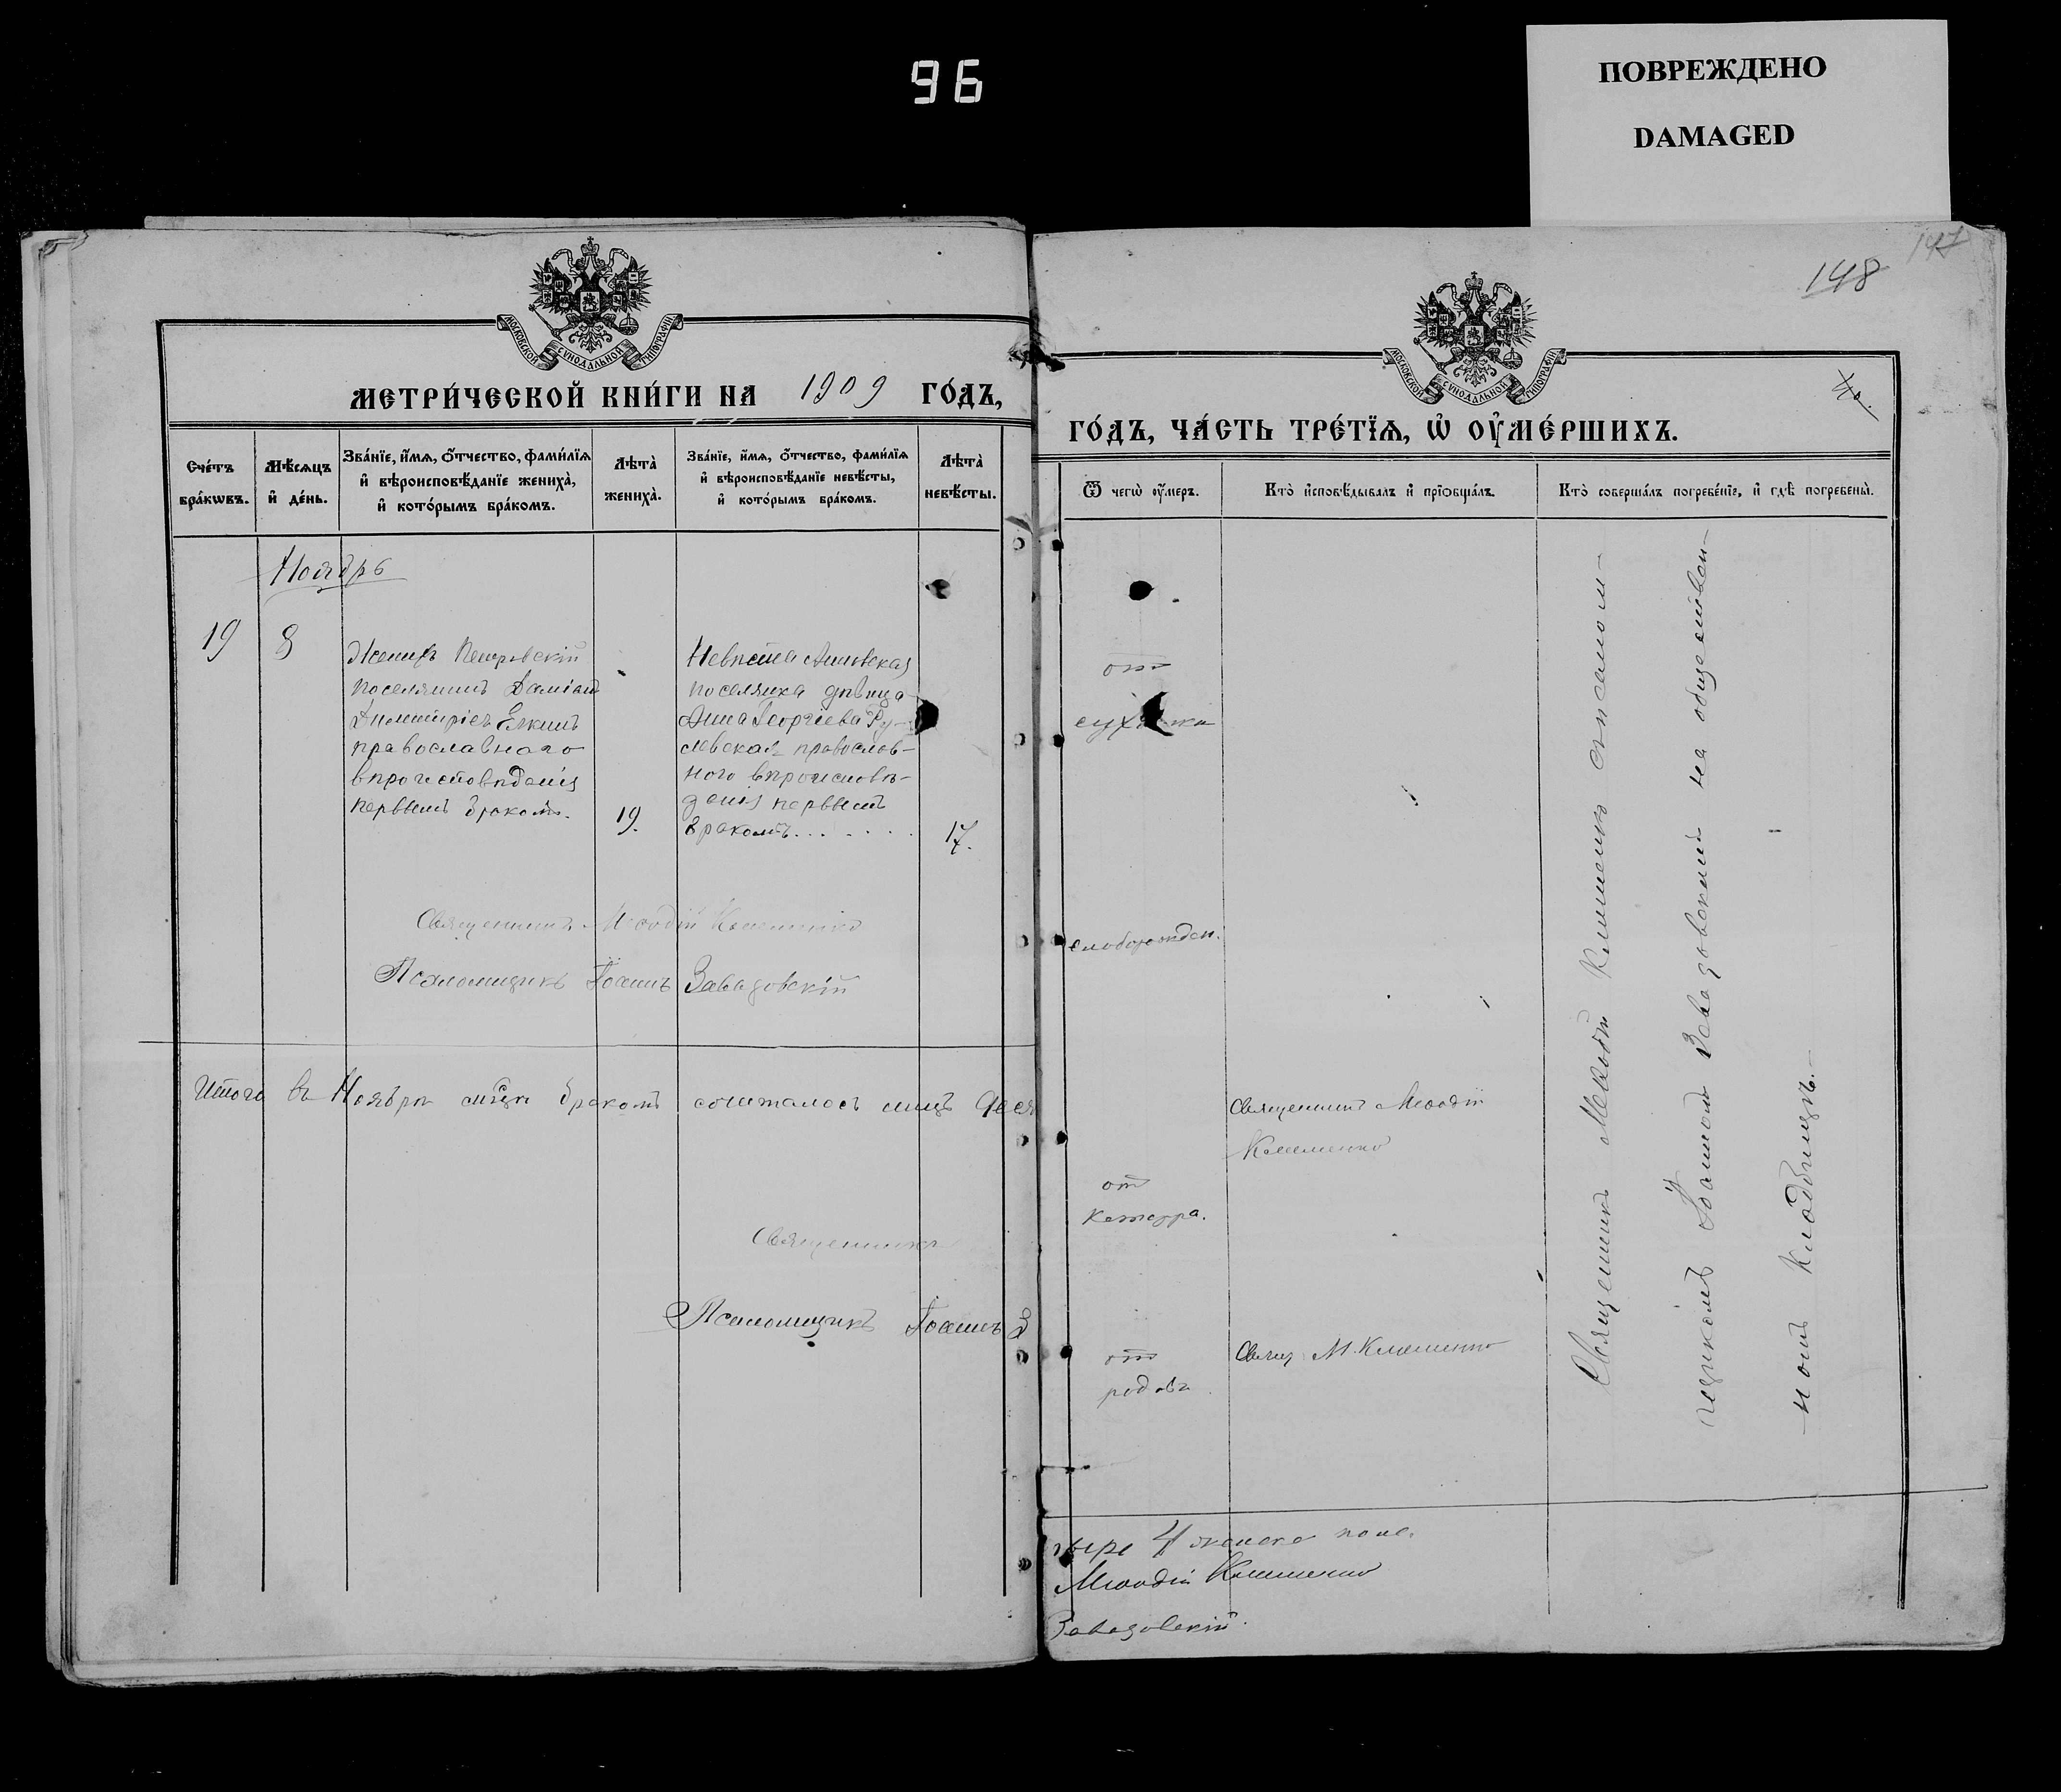 96
ПОВРЕЖДЕНО
DAMAGED
МОСКОВСКОЙ СѴНОДАЛЬНОЙ ТИПОГРАФІИ
МЕТРИ́ЧЕСКОЙ КНИ́ГИ НА 1909 ГО́ДЪ,
Сче́тъ бра́кѡвъ.
Мѣ́сяцъ и҆ де́нь.
Зва́нїе, и҆́мѧ, ѻ҆́тчество, фами́лїѧ
и҆ вѣроисповѣ́данїе жениха̀,
и҆ кото́рымъ бра́комъ.
Лѣта̀ жениха̀.
Зва́нїе, и҆́мѧ, ѻ҆́тчество, фами́лїѧ
и҆ вѣроисповѣ́данїе невѣ́сты,
и҆ кото́рымъ бра́комъ.
Лѣта̀ невѣ́сты.
Ноябрь
19
8
Женихъ Петровскій
поселянинъ Даміанъ
Димитріевъ Елкинъ
православнаго
вѣроисповѣданія
первымъ бракомъ.
19.
Невѣста
поселянка дѣвица
Анна Георгіева Ру-
православ-
ного вѣроисповѣ-
данія первымъ
бракомъ.......
17.
Священникъ Меѳодій Клименко
Псаломщикъ Іоаннъ Завадовскій
Итого въ Ноябрѣ мѣсяцѣ бракомъ сочеталось лицъ
Священникъ
Псаломщикъ Іоаннъ З
147
148
МОСКОВСКОЙ СѴНОДАЛЬНОЙ ТИПОГРАФІИ
ГО́ДЪ, ЧА́СТЬ ТРЕ́ТЇѦ, Ѡ҆ ОУ҆МЕ́РШИХЪ.
Ѿ чегѡ̀ оу҆́меръ.
Кто̀ и҆сповѣ́дывалъ и҆ прїѡбща́лъ.
Кто̀ соверша́лъ погребе́нїе, и҆ гдѣ̀ погребены̀.
отъ
слаборожден.
Священникъ Меѳодій
Клименко
отъ
катарра.
отъ
родовъ
Свящ. М. Клименко
Священникъ Меѳодій Клименко съ псалом-
щикомъ Іоанномъ Завадовскимъ на обществен-
номъ кладбищѣ.-
тыре 4 женска пола.
Меѳодій Клименко
Завадовскій.